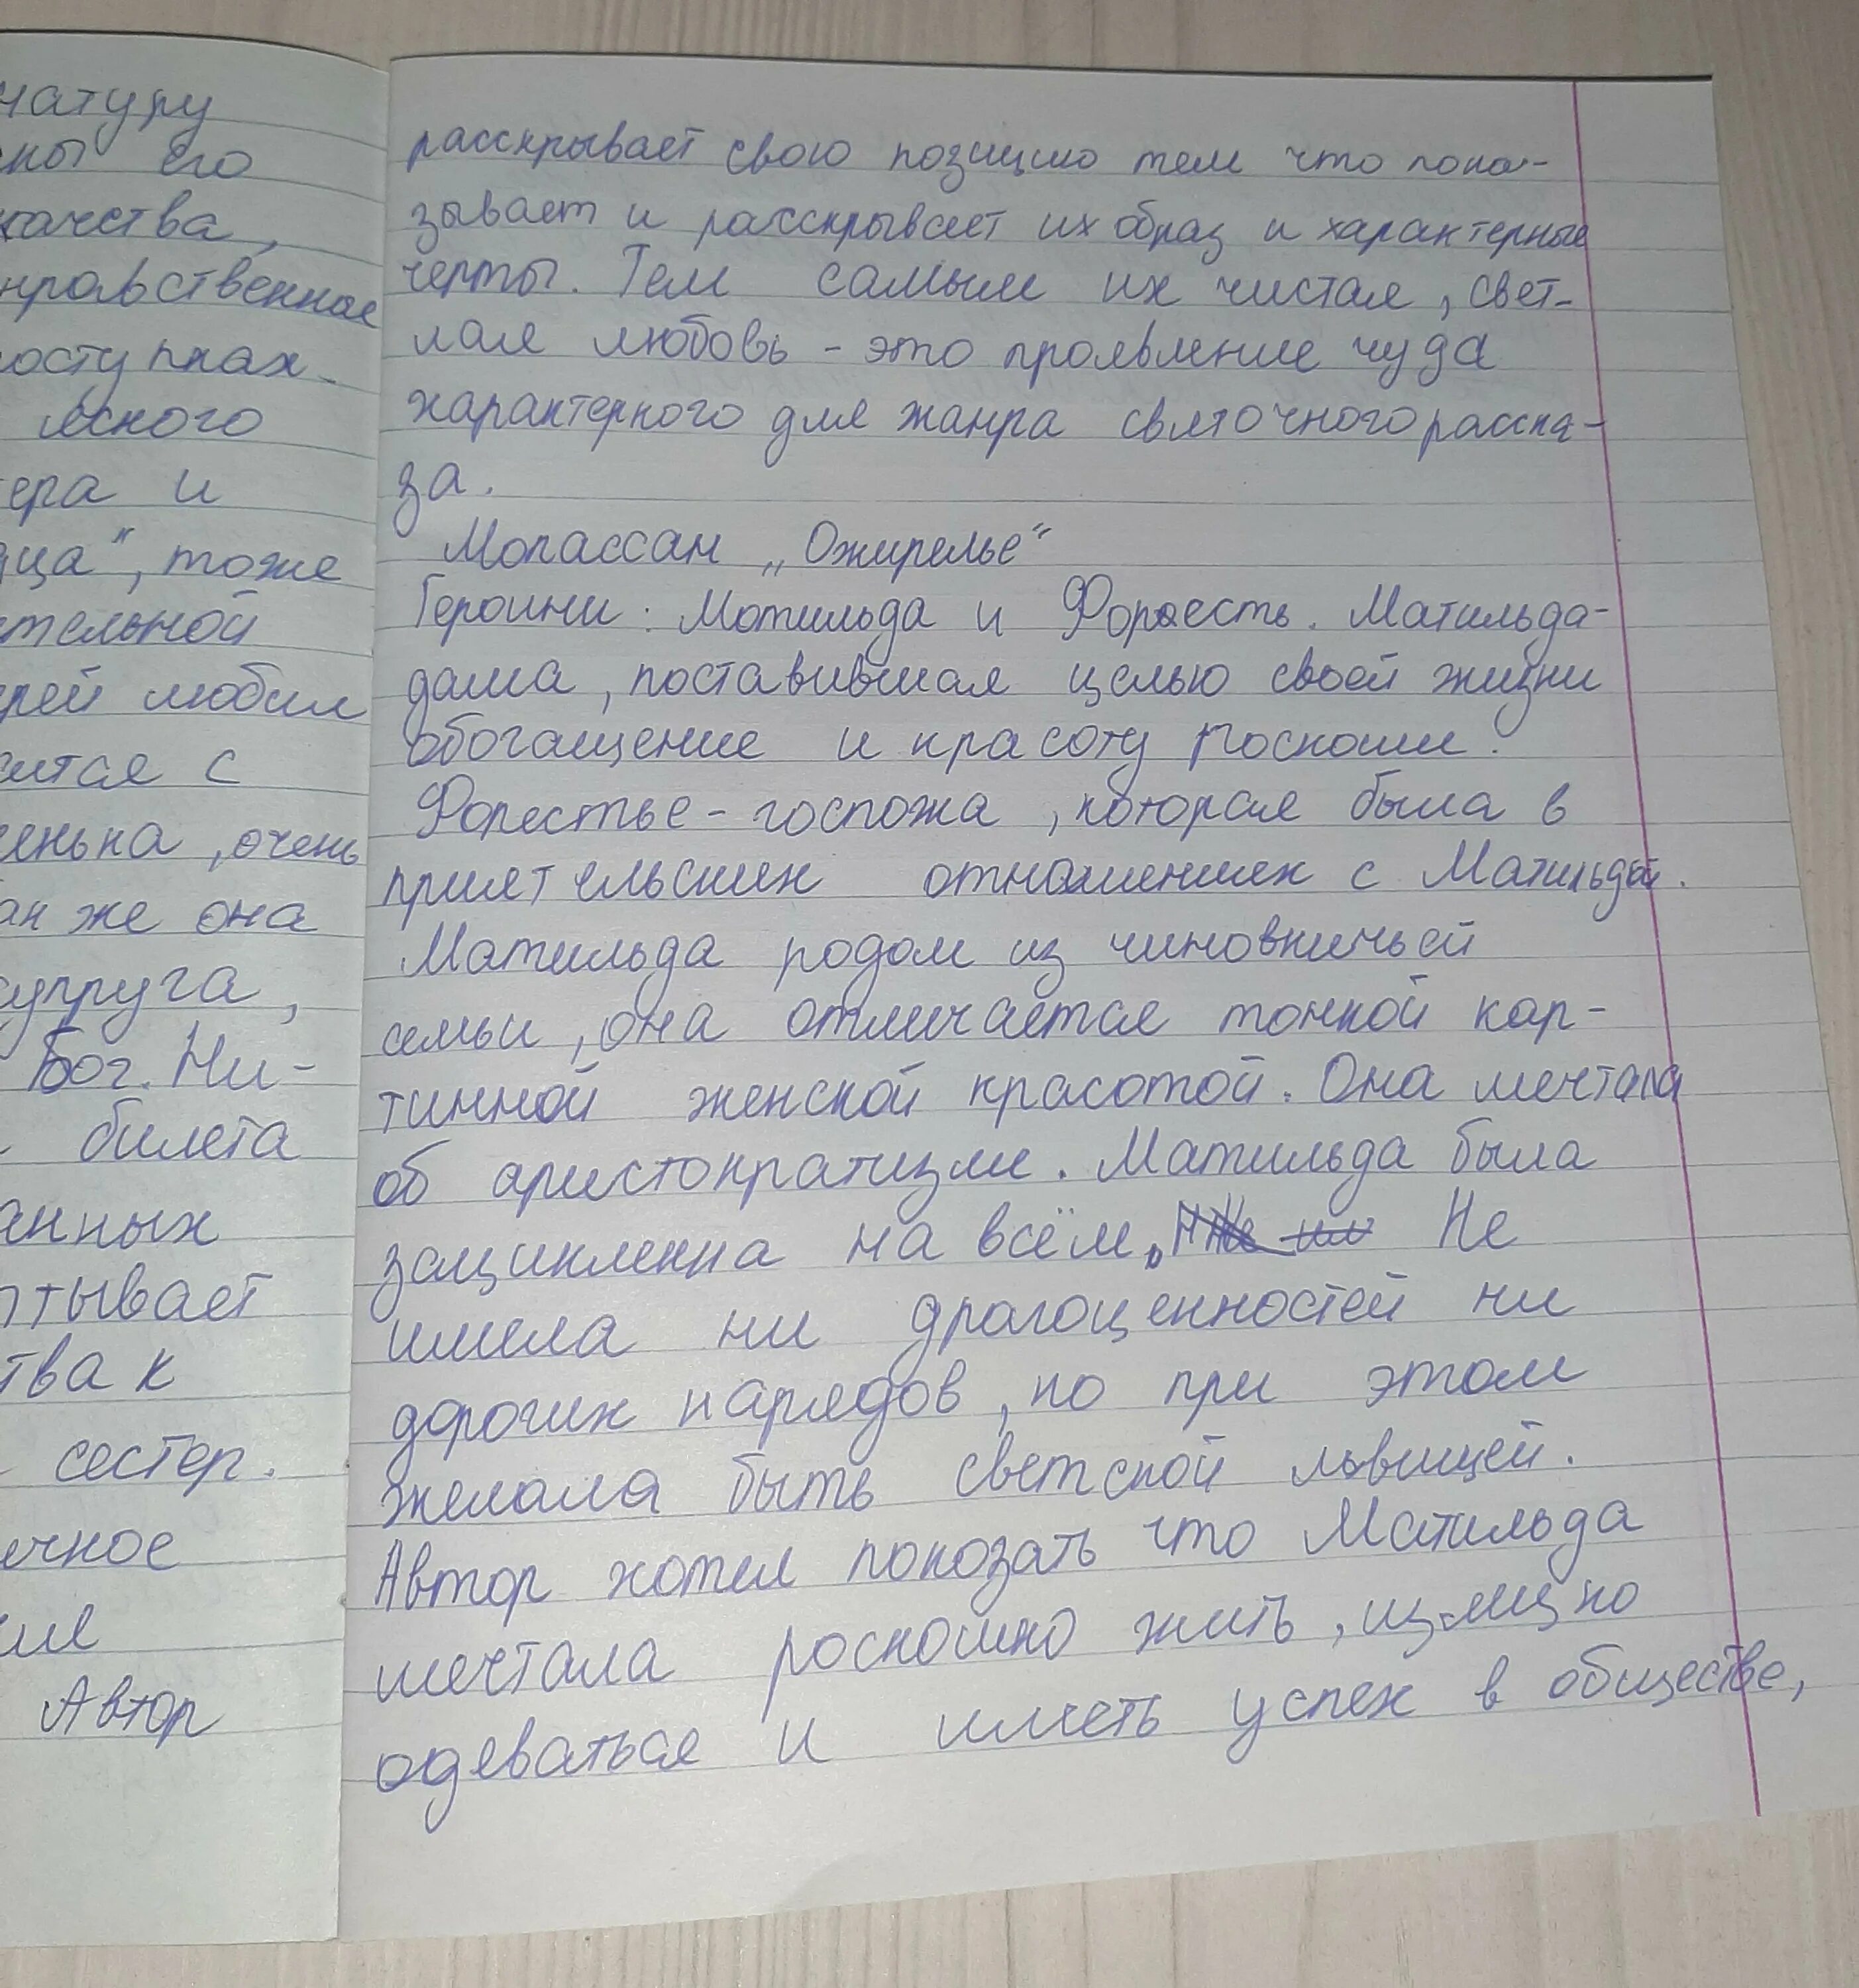 натуру
его
качества,
нравственное
поступках.
ясного
ера и
ца", тоже
ительной
рей любил
сится с
женька, очень
ак же она
супруга,
Бог. Ни-
билета
анных
тывает
тва к
сестер.
ечное
ие
Автор
расскрывает свою позицию тем что пока-
зывает и расскрывает их образ и характерные
черты. Тем самым их чистая, свет-
лая любовь - это проявление чуда
характерного для жанра святочного расска-
за.
Мопассан „Ожирелье“
Героини: Мотильда и Форесть. Матильда-
дама, поставившая целью своей жизни
обогащение и красоту роскоши.
Форестье - госпожа, которая была в
приятельских отношениях с Матильдой.
Матильда родом из чиновничьей
семьи, она отличается тонкой кар-
тинной женской красотой. Она мечтала
об аристократизме. Матильда была
зациклена на всём. Не
имела ни драгоценностей ни
дорогих нарядов, но при этом
желала быть светской львицей.
Автор хотел покозать что Матильда
мечтала роскошно жить, изящно
одеваться и иметь успех в обществе,